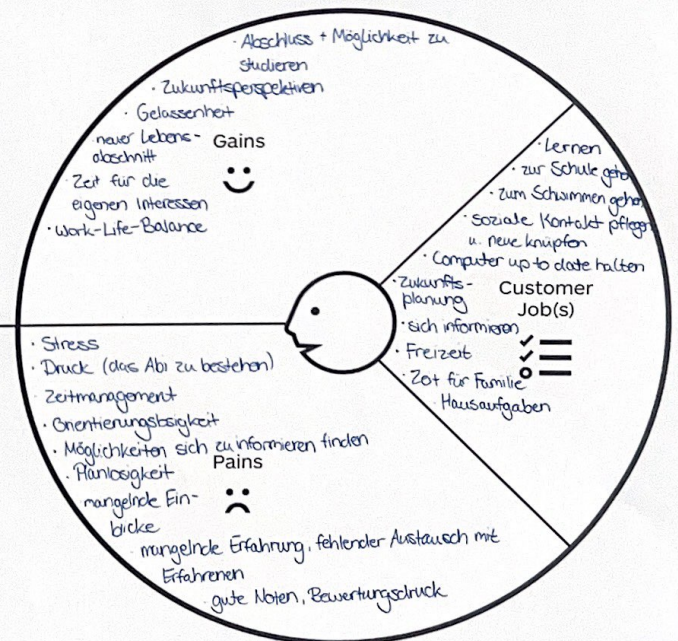 · Abschluss + Möglichkeit zu
studieren
· Zukunftsperspektiven
· Gelassenheit
neuer Lebens-
abschnitt
Gains
· Zeit für die
eigenen Interessen
· Work-Life-Balance
· Lernen
· zur Schule gehen
· zum Schwimmen gehen
· soziale Kontakt pflegen
u. neue knüpfen
· Computer up to date halten
· Zukunfts-
planung
Customer
Job(s)
· sich informieren
· Freizeit
· Zeit für Familie
· Hausaufgaben
· Stress
· Druck (das Abi zu bestehen)
· Zeitmanagement
· Orientierungslosigkeit
· Möglichkeiten sich zu informieren finden
· Planlosigkeit
Pains
mangelnde Ein-
blicke
· mangelnde Erfahrung, fehlender Austausch mit
Erfahrenen
· gute Noten, Bewertungsdruck